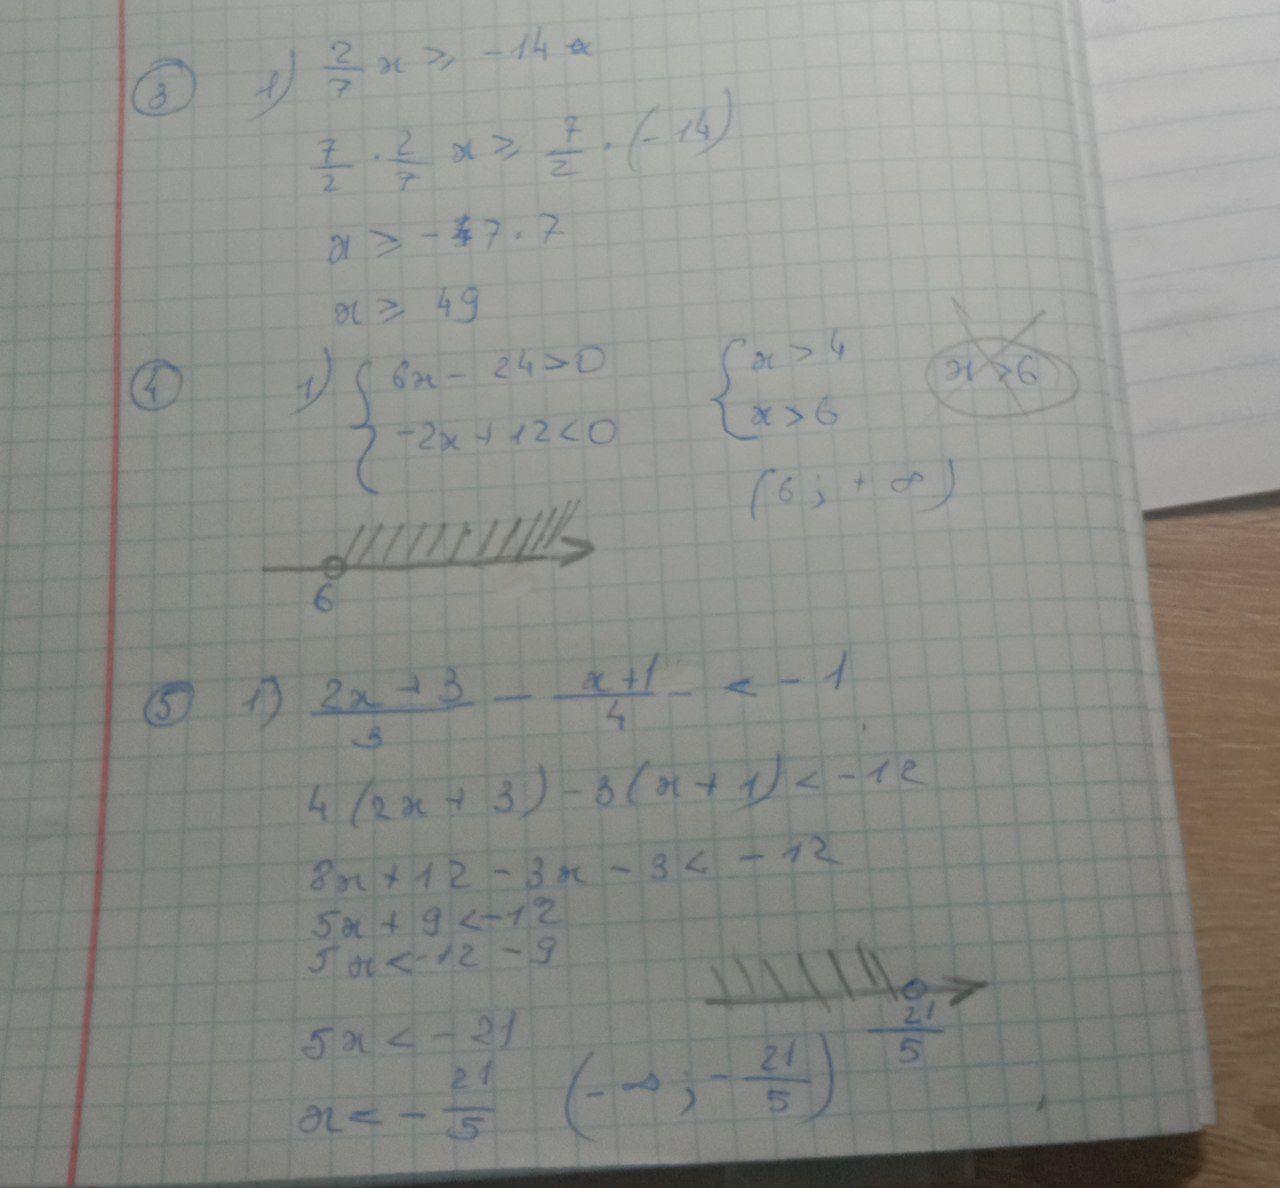 ③ 1) 2/7 x ≥ -14
7/2 · 2/7 x ≥ 7/2 · (-14)
x ≥ -7 · 7
x ≥ 49
④ 1) { 6x - 24 > 0 { x > 4
-2x + 12 < 0 x > 6
x > 6
(6; +∞)
6
⑤ 1) (2x + 3)/3 - (x+1)/4 - < -1
4(2x + 3) - 3(x + 1) < -12
8x + 12 - 3x - 3 < -12
5x + 9 < -12
5x < -12 - 9
5x < -21
-21/5
x < -21/5 (-∞; -21/5)